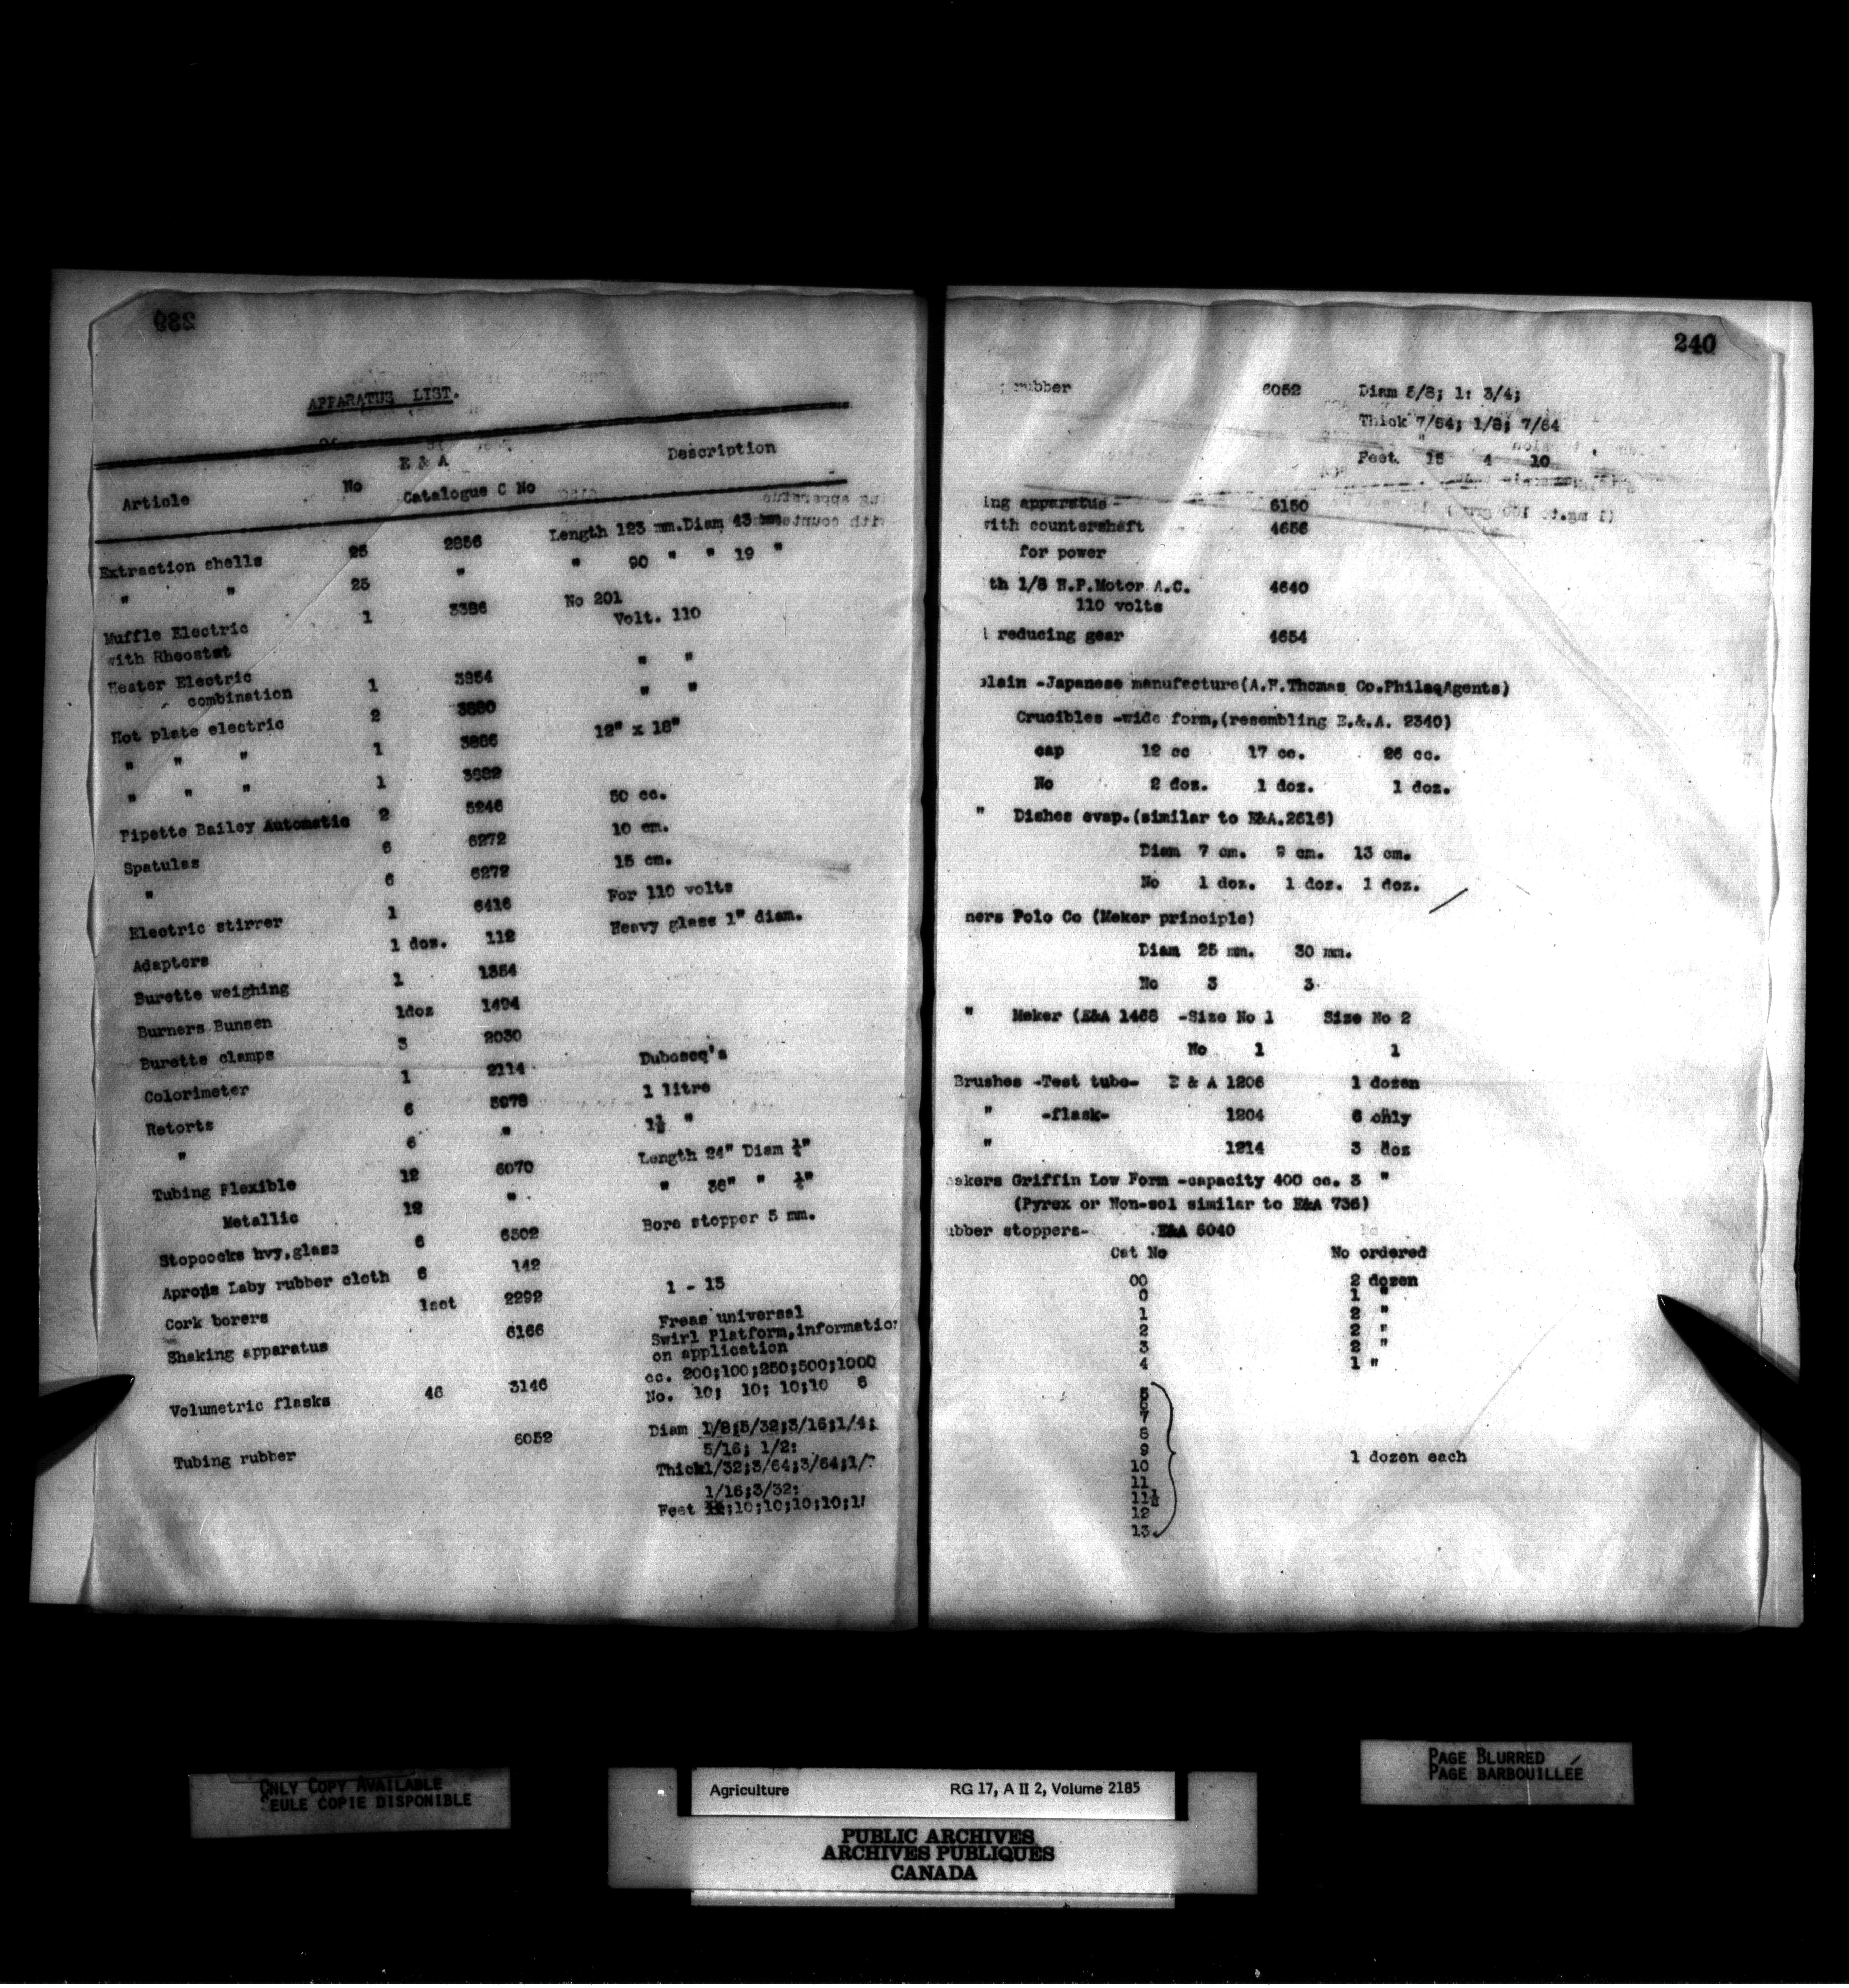 239
APPARATUS LIST.
Article No E & A Catalogue C No Description
Extraction shells 25 2856 Length 123 mm.Diam 43 mm
" " 25 " " 90 " " 19 "
Muffle Electric 1 3386 No 201
with Rheostat Volt. 110
Heater Electric
combination 1 3854 " "
Hot plate electric 2 3880 " "
" " " 1 3886 12" x 18"
" " " 1 3882
Pipette Bailey Automatic 2 5246 50 cc.
Spatulas 6 6272 10 cm.
" 6 6272 15 cm.
Electric stirrer 1 6416 For 110 volts
Adapters 1 doz. 112 Heavy glass 1" diam.
Burette weighing 1 1354
Burners Bunsen 1doz 1494
Burette clamps 3 2030
Colorimeter 1 2114 Duboscq's
Retorts 6 5978 1 litre
" 6 " 1½ "
Tubing Flexible 12 6070 Length 24" Diam ¼"
Metallic 12 " " 36" " ¼"
Stopcocks hvy.glass 6 6502 Bore stopper 5 mm.
Aprons Laby rubber cloth 6 142
Cork borers 1set 2292 1 - 15
Shaking apparatus 6166 Freas universal
Swirl Platform,information
on application
Volumetric flasks 46 3146 cc. 200;100;250;500;1000
No. 10; 10; 10;10 6
Tubing rubber 6052 Diam 1/8;5/32;3/16;1/4;
5/16; 1/2:
Thick1/32;3/64;3/64;1/
1/16;3/32:
Feet ;10;10;10;10;1
240
rubber 6052 Diam 5/8; 1: 3/4;
Thick 7/64; 1/8; 7/64
Feet. 15 4 10
ing apparatus - 6150
with countershaft 4656
for power
th 1/8 H.P.Motor A.C. 4640
110 volts
reducing gear 4654
lain -Japanese manufacture(A.H.Thomas Co.PhilaqAgents)
Crucibles -wide form,(resembling E.&.A. 2340)
cap 12 cc 17 cc. 26 cc.
No 2 doz. 1 doz. 1 doz.
" Dishes evap.(similar to E&A.2616)
Diam 7 cm. 9 cm. 13 cm.
No 1 doz. 1 doz. 1 doz.
ners Polo Co (Meker principle)
Diam 25 mm. 30 mm.
No 3 3
" Meker (E&A 1468 -Size No 1 Size No 2
No 1 1
Brushes -Test tube- E & A 1206 1 dozen
" -flask- 1204 6 only
" 1214 3 doz
akers Griffin Low Form -capacity 400 cc. 3 "
(Pyrex or Non-sol similar to E&A 736)
ubber stoppers- E&A 6040
Cat No No ordered
00 2 dozen
0 1 "
1 2 "
2 2 "
3 2 "
4 1 "
5
6
7
8
9
10 1 dozen each
11
11½
12
13
ONLY COPY AVAILABLE
SEULE COPIE DISPONIBLE
Agriculture RG 17, A II 2, Volume 2185
PUBLIC ARCHIVES
ARCHIVES PUBLIQUES
CANADA
PAGE BLURRED
PAGE BARBOUILLÉE